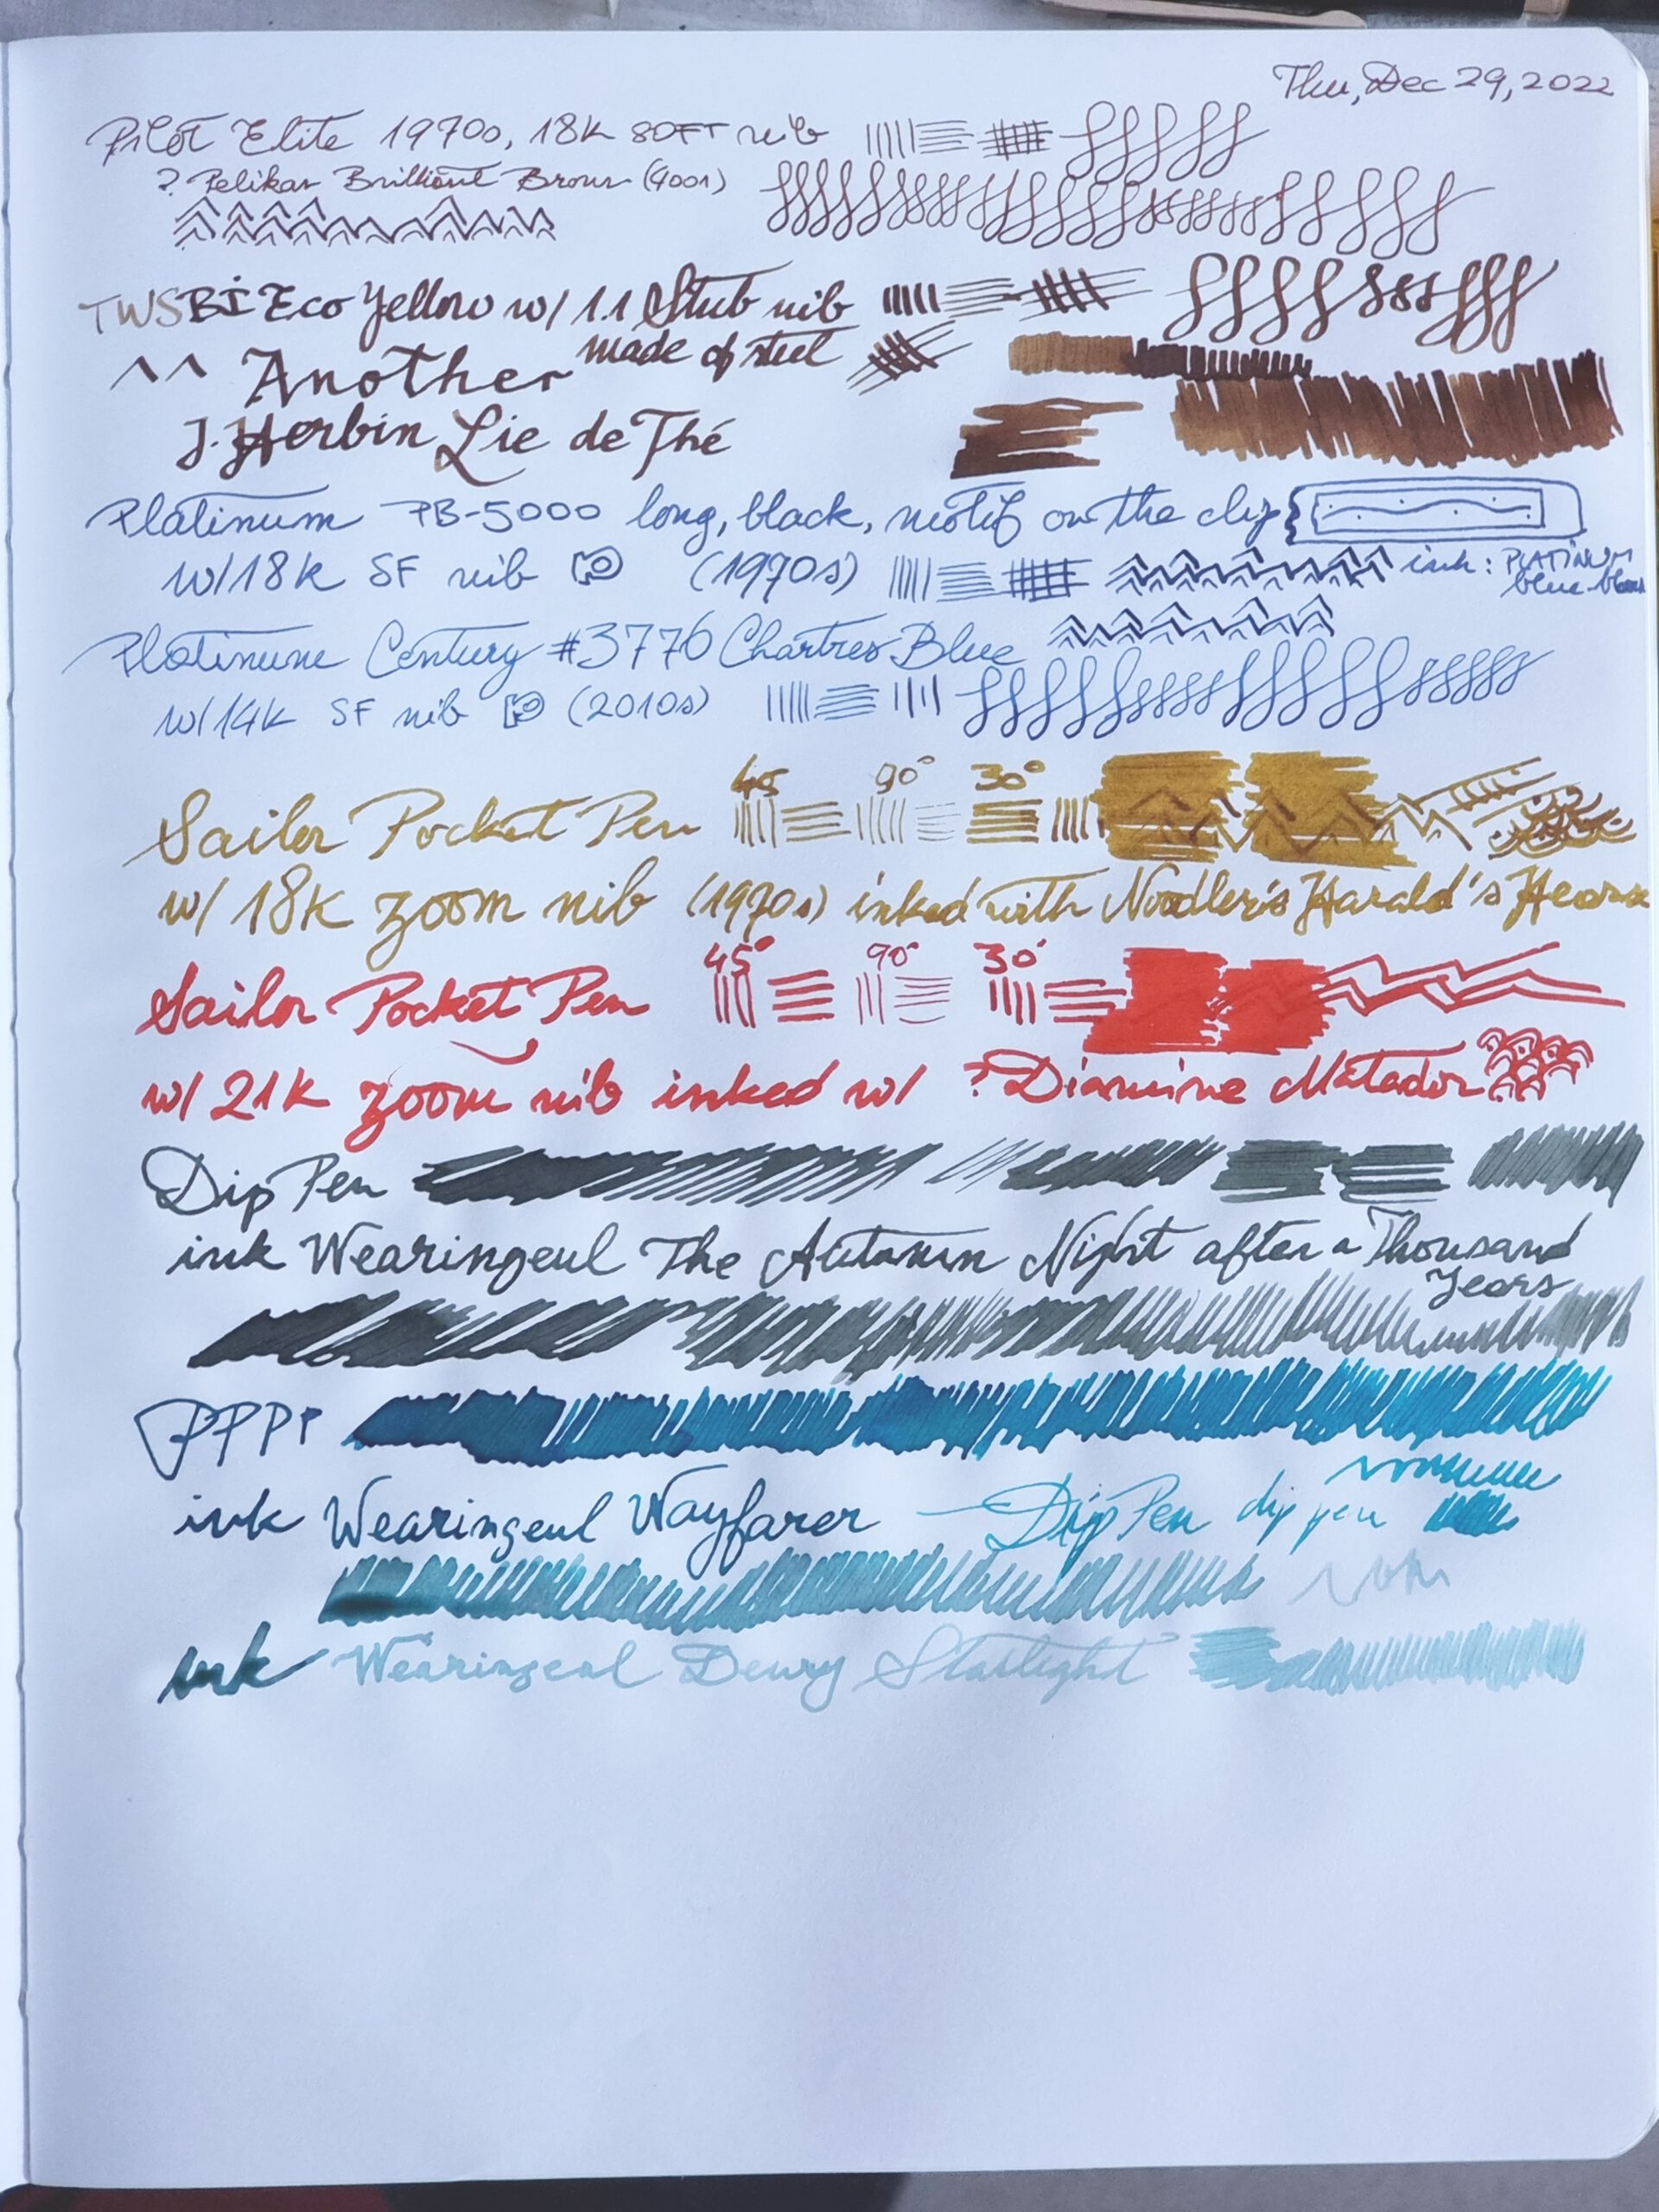 Thu, Dec 29, 2022
Pilot Elite 1970s, 18K SOFT nib
? Pelikan Brilliant Brown (4001)
TWSBI Eco Yellow w/ 1.1 Stub nib
made of steel
^^ Another
J. Herbin Lie de Thé
Platinum PB-5000 long, black, motif on the clip
w/ 18k SF nib (1970s) ink: PLATINUM
blue-black
Platinum Century #3776 Chartres Blue
w/ 14k SF nib (2010s)
45 90° 30°
Sailor Pocket Pen
w/ 18K zoom nib (1970s) inked with Noodler's Harald's
45° 90° 30°
Sailor Pocket Pen
w/ 21K zoom nib inked w/ ? Diamine Matador
Dip Pen
ink Wearingeul The Autumn Night after a Thousand
Years
PPPP
ink Wearingeul Wayfarer — Dip Pen dip pen
ink Wearingeul Dewy Starlight